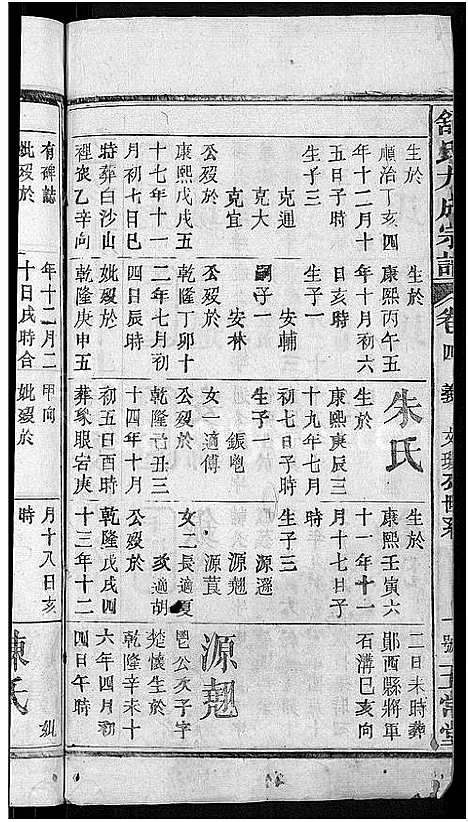 舒氏九成宗譜 卷四 義
生於
順治丁亥四
年十二月十
五日子時
生子三
克通
克大
克宜
公歿於
康熙戊戌五
十七年十一
月初七日巳
時葬白沙山
裡衷乙辛向
有碑誌
妣歿於
生於
康熙丙午五
年十月初六
日亥時
安輔
嗣子一
安林
公歿於
乾隆丁卯十
二年七月初
四日辰時
妣歿於
乾隆庚申五
年十二月二
十日戌時合
朱氏
生於
康熙庚辰三
十九年七月
初七日子時
生子一
鋠
女一適傅
公歿於
乾隆己丑三
十四年十月
初五日酉時
葬象眼宕庚
甲向
妣歿於
生於
康熙壬寅六
十一年十一
月十七日子
時
生子三
源遜
源翹
源莨
女二長適夏
次適胡
公歿於
乾隆戊戌四
十三年十二
月十八日亥
時
二日未時葬
鄖西縣將軍
石溝巳亥向
源翹
鬯公次子字
楚懷生於
乾隆辛未十
六年四月初
四日午時
陳氏